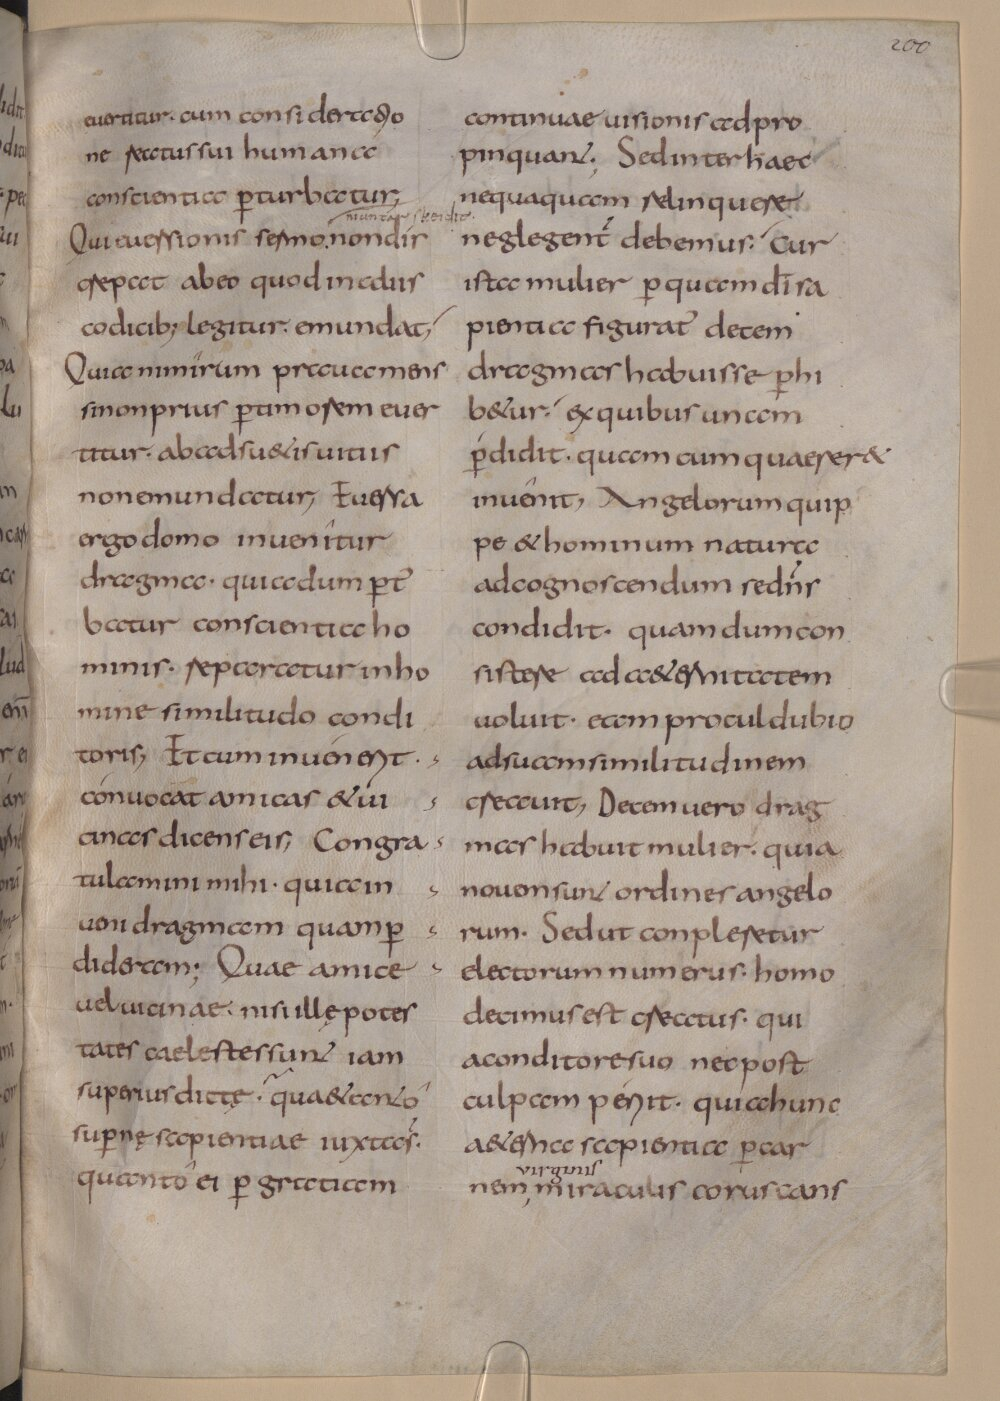 200
euertitur. cum consideratio
ne reatus sui humana
conscientia pturbatur;
niuntar skeidit.
Qui euersionis sermo, non dis
crepat ab eo quod in aliis
codicib; legitur. emundat;
Quia nimirum praua mens
si non prius p timorem euer
titur. ab adsuetis uitiis
non emundatur; Euersa
ergo domo inuenitur
dragma. quia dum ptur
batur conscientia ho
minis. reparatur in ho
mine similitudo condi
toris; Et cum inuenerit.
conuocat amicas & ui
cinas dicens eis; Congra
tulamini mihi. quia in
ueni dragmam quam p
dideram; Quae amice
uel uicinae. nisi ille potes
tates caelestes sunt iam
superius dicte. quae tanto
supne sapientiae iuxta s.
quanto ei p gratiam
continuae uisionis ad pro
pinquant; Sed inter haec
nequaquam relinquere
neglegent debemus. Cur
ista mulier p quam di sa
pientia figurat decem
dragmas habuisse phi
betur. ex quibus unam
pdidit. quam cum quaerer&
inuenit; Angelorum quip
pe & hominum natura
ad cognoscendum se dns
condidit. quam dum con
sistere ad aeternitatem
uoluit. eam procul dubio
ad suam similitudinem
creauit; Decem uero drag
mas habuit mulier. quia
nouem sunt ordines angelo
rum. Sed ut conpleretur
electorum numerus. homo
decimus est creatus. qui
a conditore suo nec post
culpam periit. quia hunc
aeterna sapientia p car
virginis
nem, miraculis coruscans